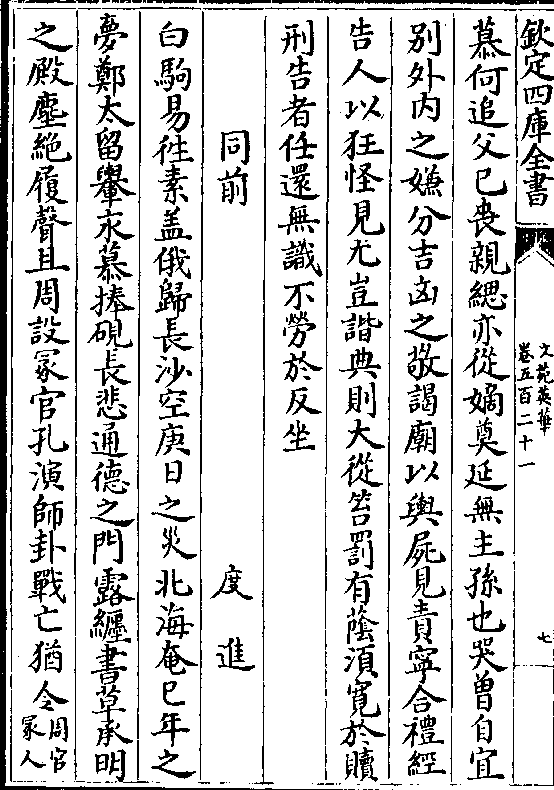 欽定四庫全書
文苑英華
卷五百二十一
七
慕何追父已喪親緦亦從嫡奠延無主孫也哭曽自宜
別外内之嫌分吉凶之敬謁廟以輿屍見責寧合禮經
告人以狂怪見尤豈諧典則大從笞罰有蔭湏寛於贖
刑告者任還無識不勞於反坐
同前
度進
白駒易徃素盖俄歸長沙空庚日之災北海奄巳年之
夢鄭太留轝永慕捧硯長悲通德之門露纏書草承明
之殿塵絶履聲且周設冢官孔演師卦戰亡猶令周官
冢人